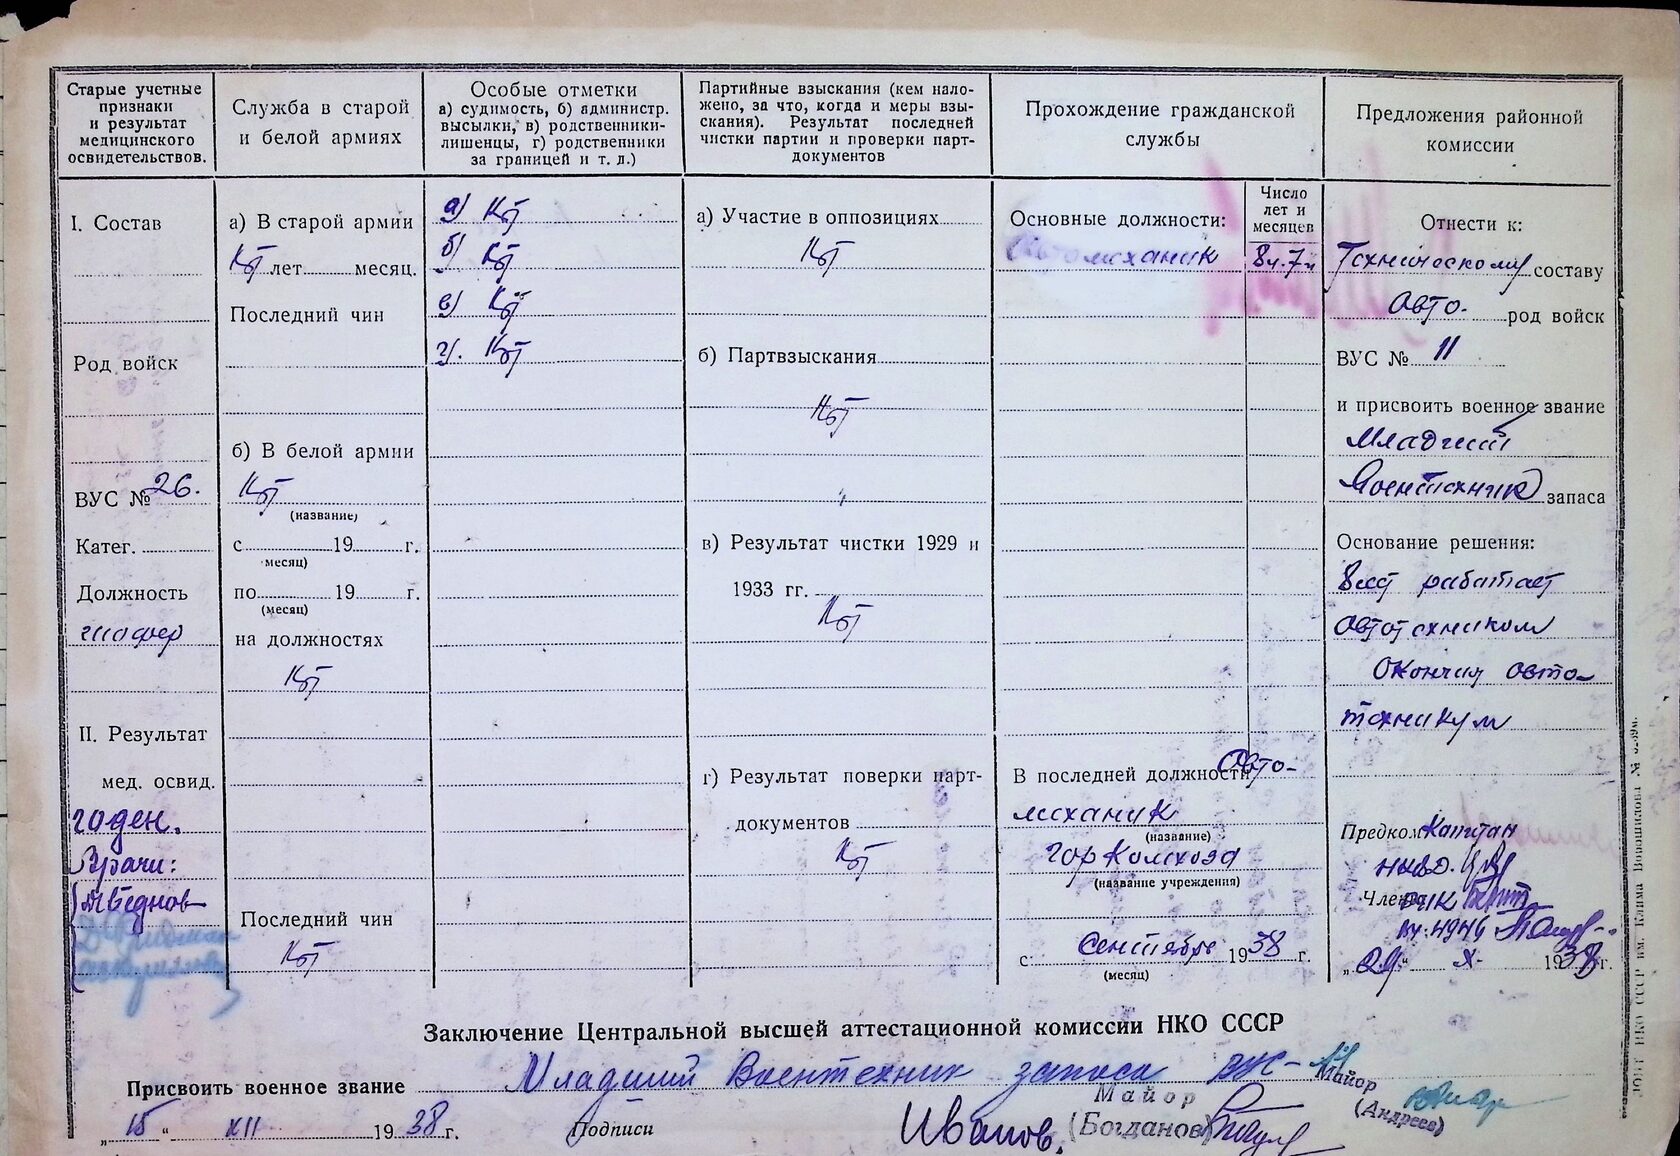 Старые учетные
признаки
и результат
медицинского
освидетельствов.
I. Состав
Род войск
ВУС № 26.
Катег.
Должность
шофер
II. Результат
мед. освид.
годен.
Врачи:
Служба в старой
и белой армиях
а) В старой армии
Нет лет месяц.
Последний чин
б) В белой армии
Нет
(название)
с 19 г.
(месяц)
по 19 г.
(месяц)
на должностях
Нет
Последний чин
Нет
Особые отметки
а) судимость, б) администр.
высылки, в) родственники-
лишенцы, г) родственники
за границей и т. л.)
а) Нет
б) Нет
в) Нет
г). Нет
Партийные взыскания (кем нало-
жено, за что, когда и меры взы-
скания). Результат последней
чистки партии и проверки парт-
документов
а) Участие в оппозициях
Нет
б) Партвзыскания
Нет
в) Результат чистки 1929 и
1933 гг.
Нет
г) Результат поверки парт-
документов
Нет
Прохождение гражданской
службы
Основные должности:
Число
лет и
месяцев
Автомеханик
В последней должности Авто-
механик
(название)
(название учреждения)
с Сентябре 1938 г.
(месяц)
Предложения районной
комиссии
Отнести к:
Техническому составу
Авто. род войск
ВУС № 11
и присвоить военное звание
Младший
Воентехник запаса
Основание решения:
работает
автотехником
Окончил авто-
техникум
Предком Капитан
Члены
„29“ X 1938 г.
Заключение Центральной высшей аттестационной комиссии НКО СССР
Присвоить военное звание Младший Воентехник запаса ВУС-
Майор
Майор
(Андреев)
„15“ XII 1938 г. Подписи Иванов. (Богданов)